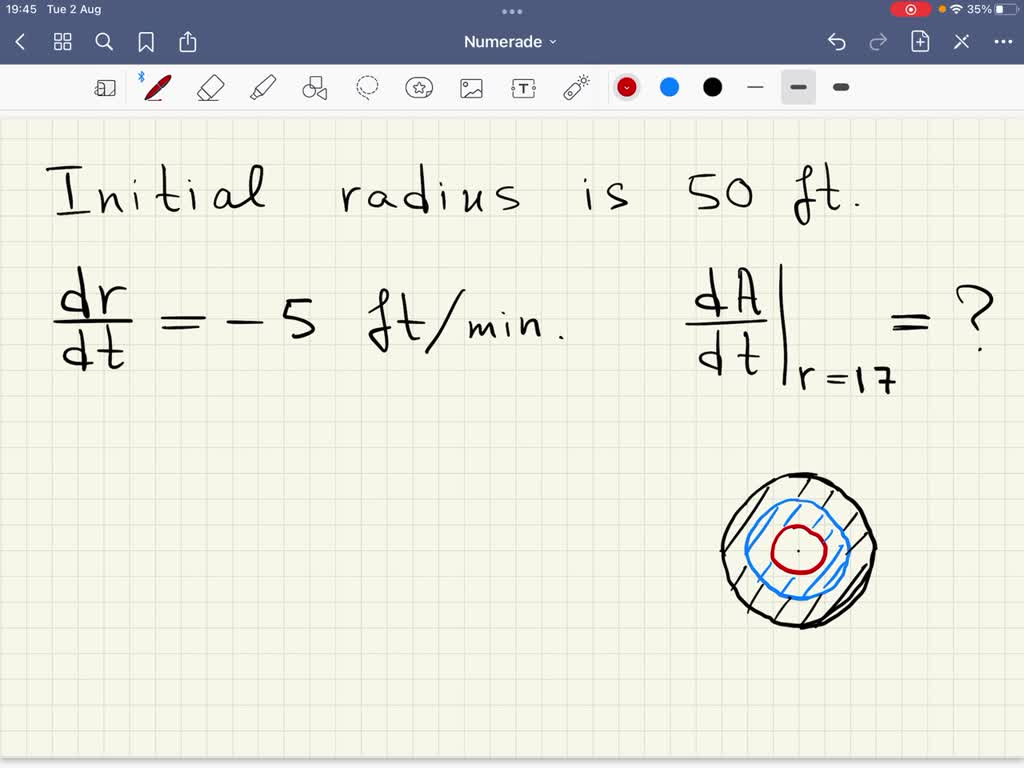 19:45 Tue 2 Aug 35%
Numerade
T
Initial radius is 50 ft.
dr/dt = - 5 ft/min. dA/dt|r=17 = ?